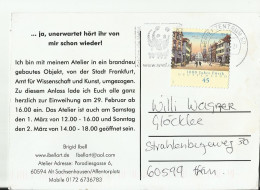 ... ja, unerwartet hört ihr von
mir schon wieder!
Ich bin mit meinem Atelier in ein brandneu
gebautes Objekt, von der Stadt Frankfurt,
Amt für Wissenschaft und Kunst, umgezogen.
Zu diesem Anlass lade ich Euch alle ganz
herzlich zur Einweihung am 29. Februar ab
16.00 ein. Das Atelier ist auch am Samstag
den 1. März von 12.00 - 16.00 und Sonntag
den 2. März von 14.00 - 18.00 geöffnet sein.
Brigid Ibell
www.ibellart.de    ibellart@aol.com
Atelier Adresse: Paradiesgasse 6,
60594 Alt Sachsenhausen/Affentorplatz
Mobile 0172 6736783
45
Willi Wagner
Glöcklee
Strahlenbugweg 30
60599 Ffm.